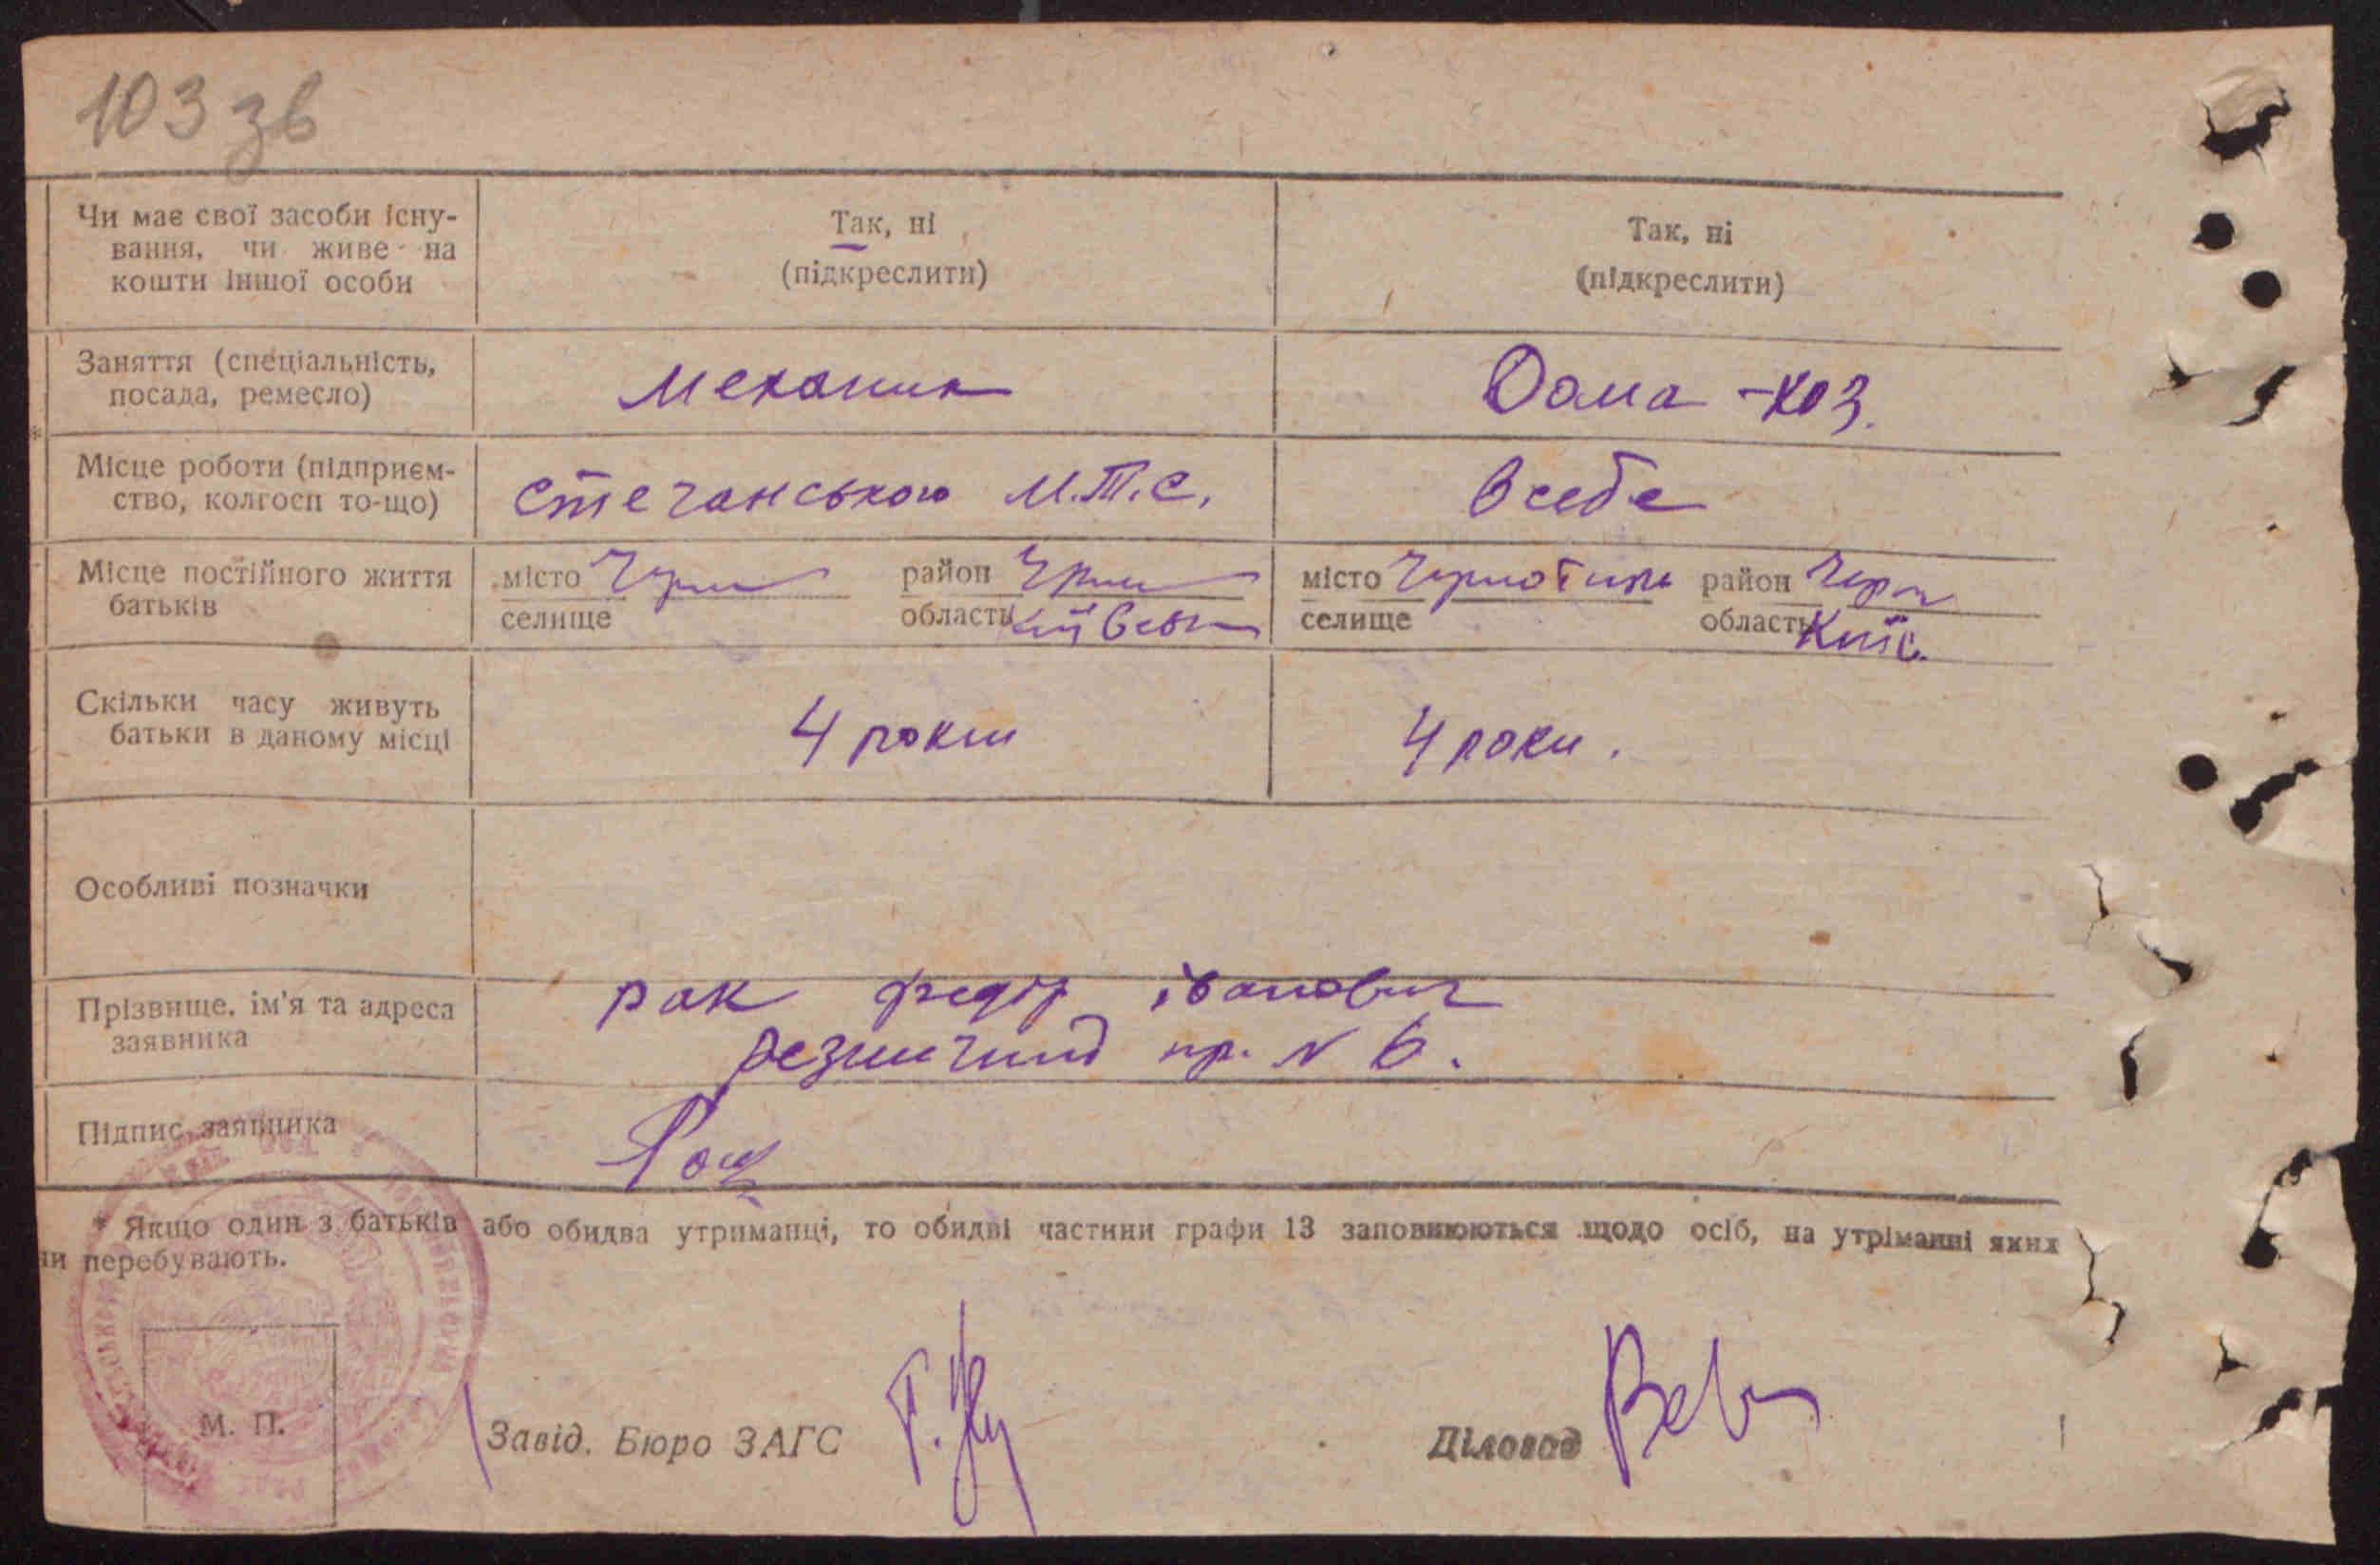 103 зв
Чи має свої засоби існу-
вання, чи живе на
кошти іншої особи
Так, ні
(підкреслити)
Так, ні
(підкреслити)
Заняття (спеціальність,
посада, ремесло)
механик
Дома-хоз.
Місце роботи (підприєм-
ство, колгосп то-що)
М.Т.С.
В себе
Місце постійного життя
батьків
місто
селище
район
область Київськ
місто
селище
район
область Київ.
Скільки часу живуть
батьки в даному місці
4 роки
4 роки.
Особливі позначки
Прізвище, ім'я та адреса
заявника
рак федір іванович
пр. N 6.
Підпис заявника
* Якщо один з батьків або обидва утриманці, то обидві частини графи 13 заповнюються щодо осіб, на утріманні яких
ни перебувають.
М. П.
Завід. Бюро ЗАГС
Діловод